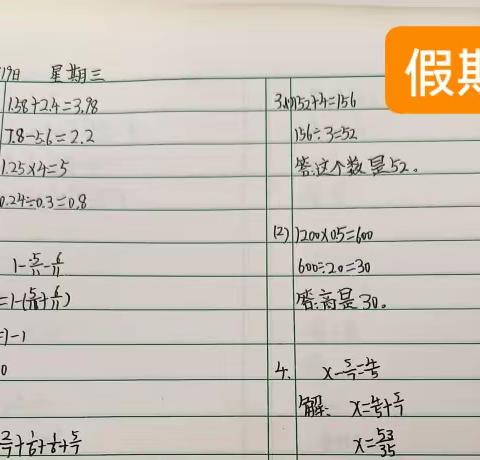 19日 星期三
1.58+2.4=3.98
7.8-5.6=2.2
1.25×4=5
0.24÷0.3=0.8
1-5/11-6/11
=1-(5/11+6/11)
=1-1
0
2/7+1/6+1/6+5/7
3.(1)152+4=156
156÷3=52
答:这个数是52。
(2)1200×0.5=600
600÷20=30
答:高是30。
4. x-5/7=4/5
解: x=4/5+5/7
x=53/35
假期